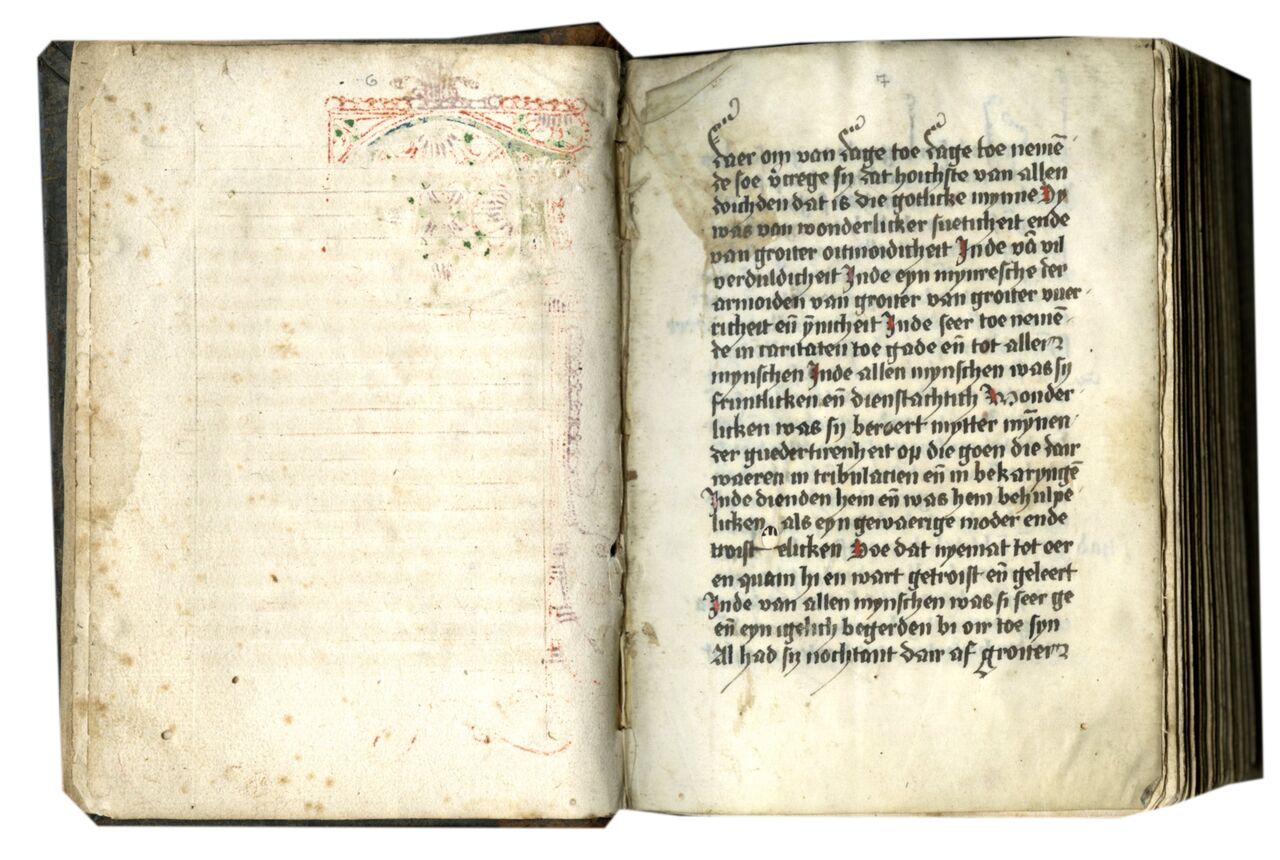 6
7
daer om van dage toe dage toe nemē
de soe v̄crege sy dat hoichste van allen
doichden dat is die gotlicke mynne Sy
was van wonderlicker sueticheit ende
van groiter oitmoidicheit Inde vā vil
verduldicheit Inde eyn mynresche der
armoiden van groiter van groiter vuer
richeit eñ ȳnicheit Inde seer toe nemē
de in caritaten toe gade eñ tot aller
mynschen Inde allen mynschen was sy
fruntlicken eñ dienstachtich Wonder
licken was sy beroert mytter mȳnen
der guedertirenheit op die goen die dair
waeren in tribulatien eñ in bekaryngē
Inde dienden hem eñ was hem behulpe
licken als eyn gewaerige moder ende
troist elicken Soe dat nyemat tot oer
en quam hi en wart getroist eñ geleert
Inde van allen mynschen was si seer ge
eñ eyn igelich begerden bi oir toe syn
Al had sy nochtant dair af groiter